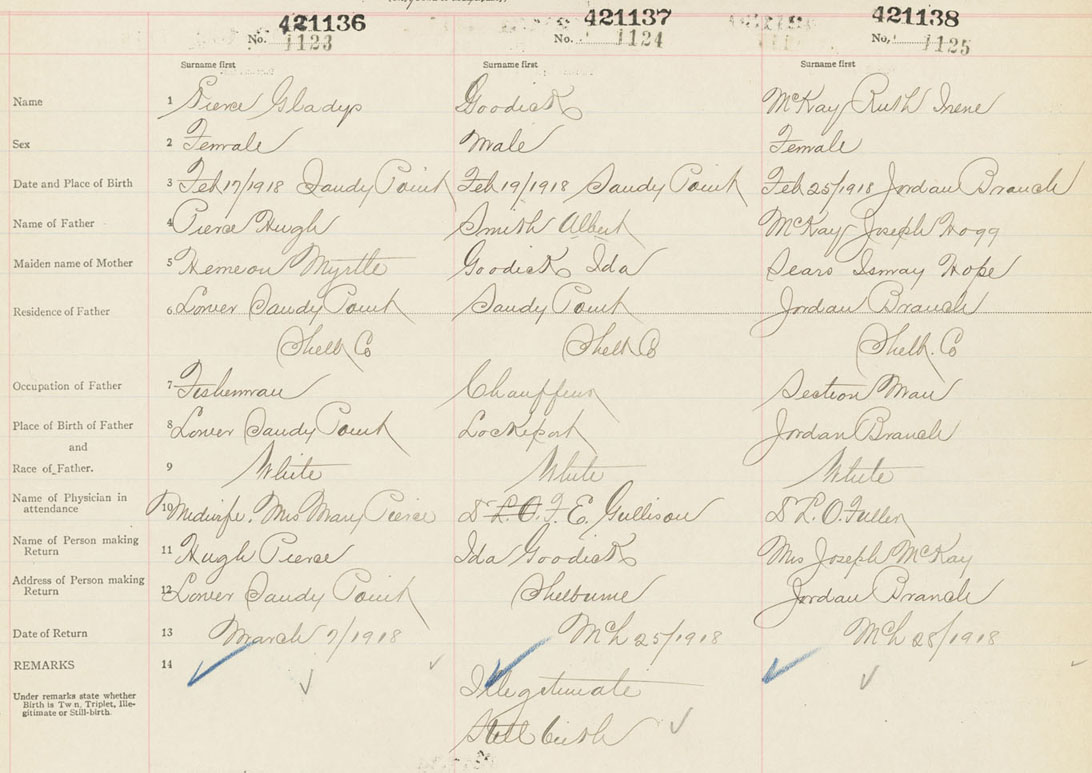 421136 421137 421138
No. 1123 No. 1124 No. 1125
Surname first Surname first Surname first
Name 1 Pierce Gladys Goodick McKay Ruth Irene
Sex 2 Female Male Female
Date and Place of Birth 3 Feb 17/1918 Sandy Point Feb 19/1918 Sandy Point Feb 25/1918 Jordan Branch
Name of Father 4 Pierce Hugh Smith Albert McKay Joseph Hogg
Maiden name of Mother 5 Hemeon Myrtle Goodick Ida Sears Ismay Hope
Residence of Father 6 Lower Sandy Point Sandy Point Jordan Branch
Shelb Co Shelb Co Shelb. Co
Occupation of Father 7 Fisherman Chauffeur Section Man
Place of Birth of Father 8 Lower Sandy Point Lockeport Jordan Branch
and
Race of Father. 9 White White White
Name of Physician in attendance 10 Midwife. Mrs Mary Pierce Dr L. O. F. E. Gullison Dr L. O. Fuller
Name of Person making Return 11 Hugh Pierce Ida Goodick Mrs Joseph McKay
Address of Person making Return 12 Lower Sandy Point Shelburne Jordan Branch
Date of Return 13 March 7/1918 Mch 25/1918 Mch 28/1918
REMARKS 14
Under remarks state whether Birth is Twin, Triplet, Illegitimate or Still-birth.
Illegitimate
Still birth